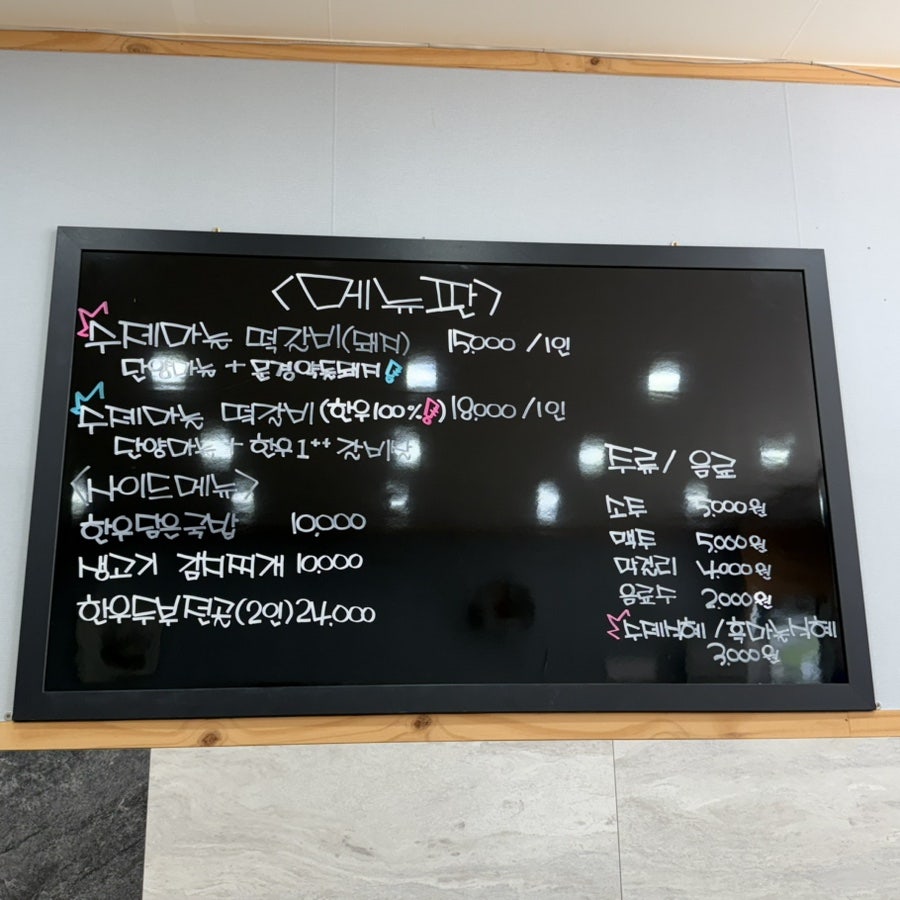 <메뉴판>
수제마늘 떡갈비(돼지) 15,000 /1인
단양마늘 + 문경약돌돼지
수제마늘 떡갈비 (한우100%) 18,000 /1인
단양마늘 + 한우 1++ 갈비살
<사이드메뉴>
한우담은국밥 10,000
생고기 김치찌개 10,000
한우두부전골(2인) 24,000
주류/ 음료
소주 5,000원
맥주 5,000원
막걸리 4,000원
음료수 2,000원
수제식혜 / 흑마늘식혜
3,000원